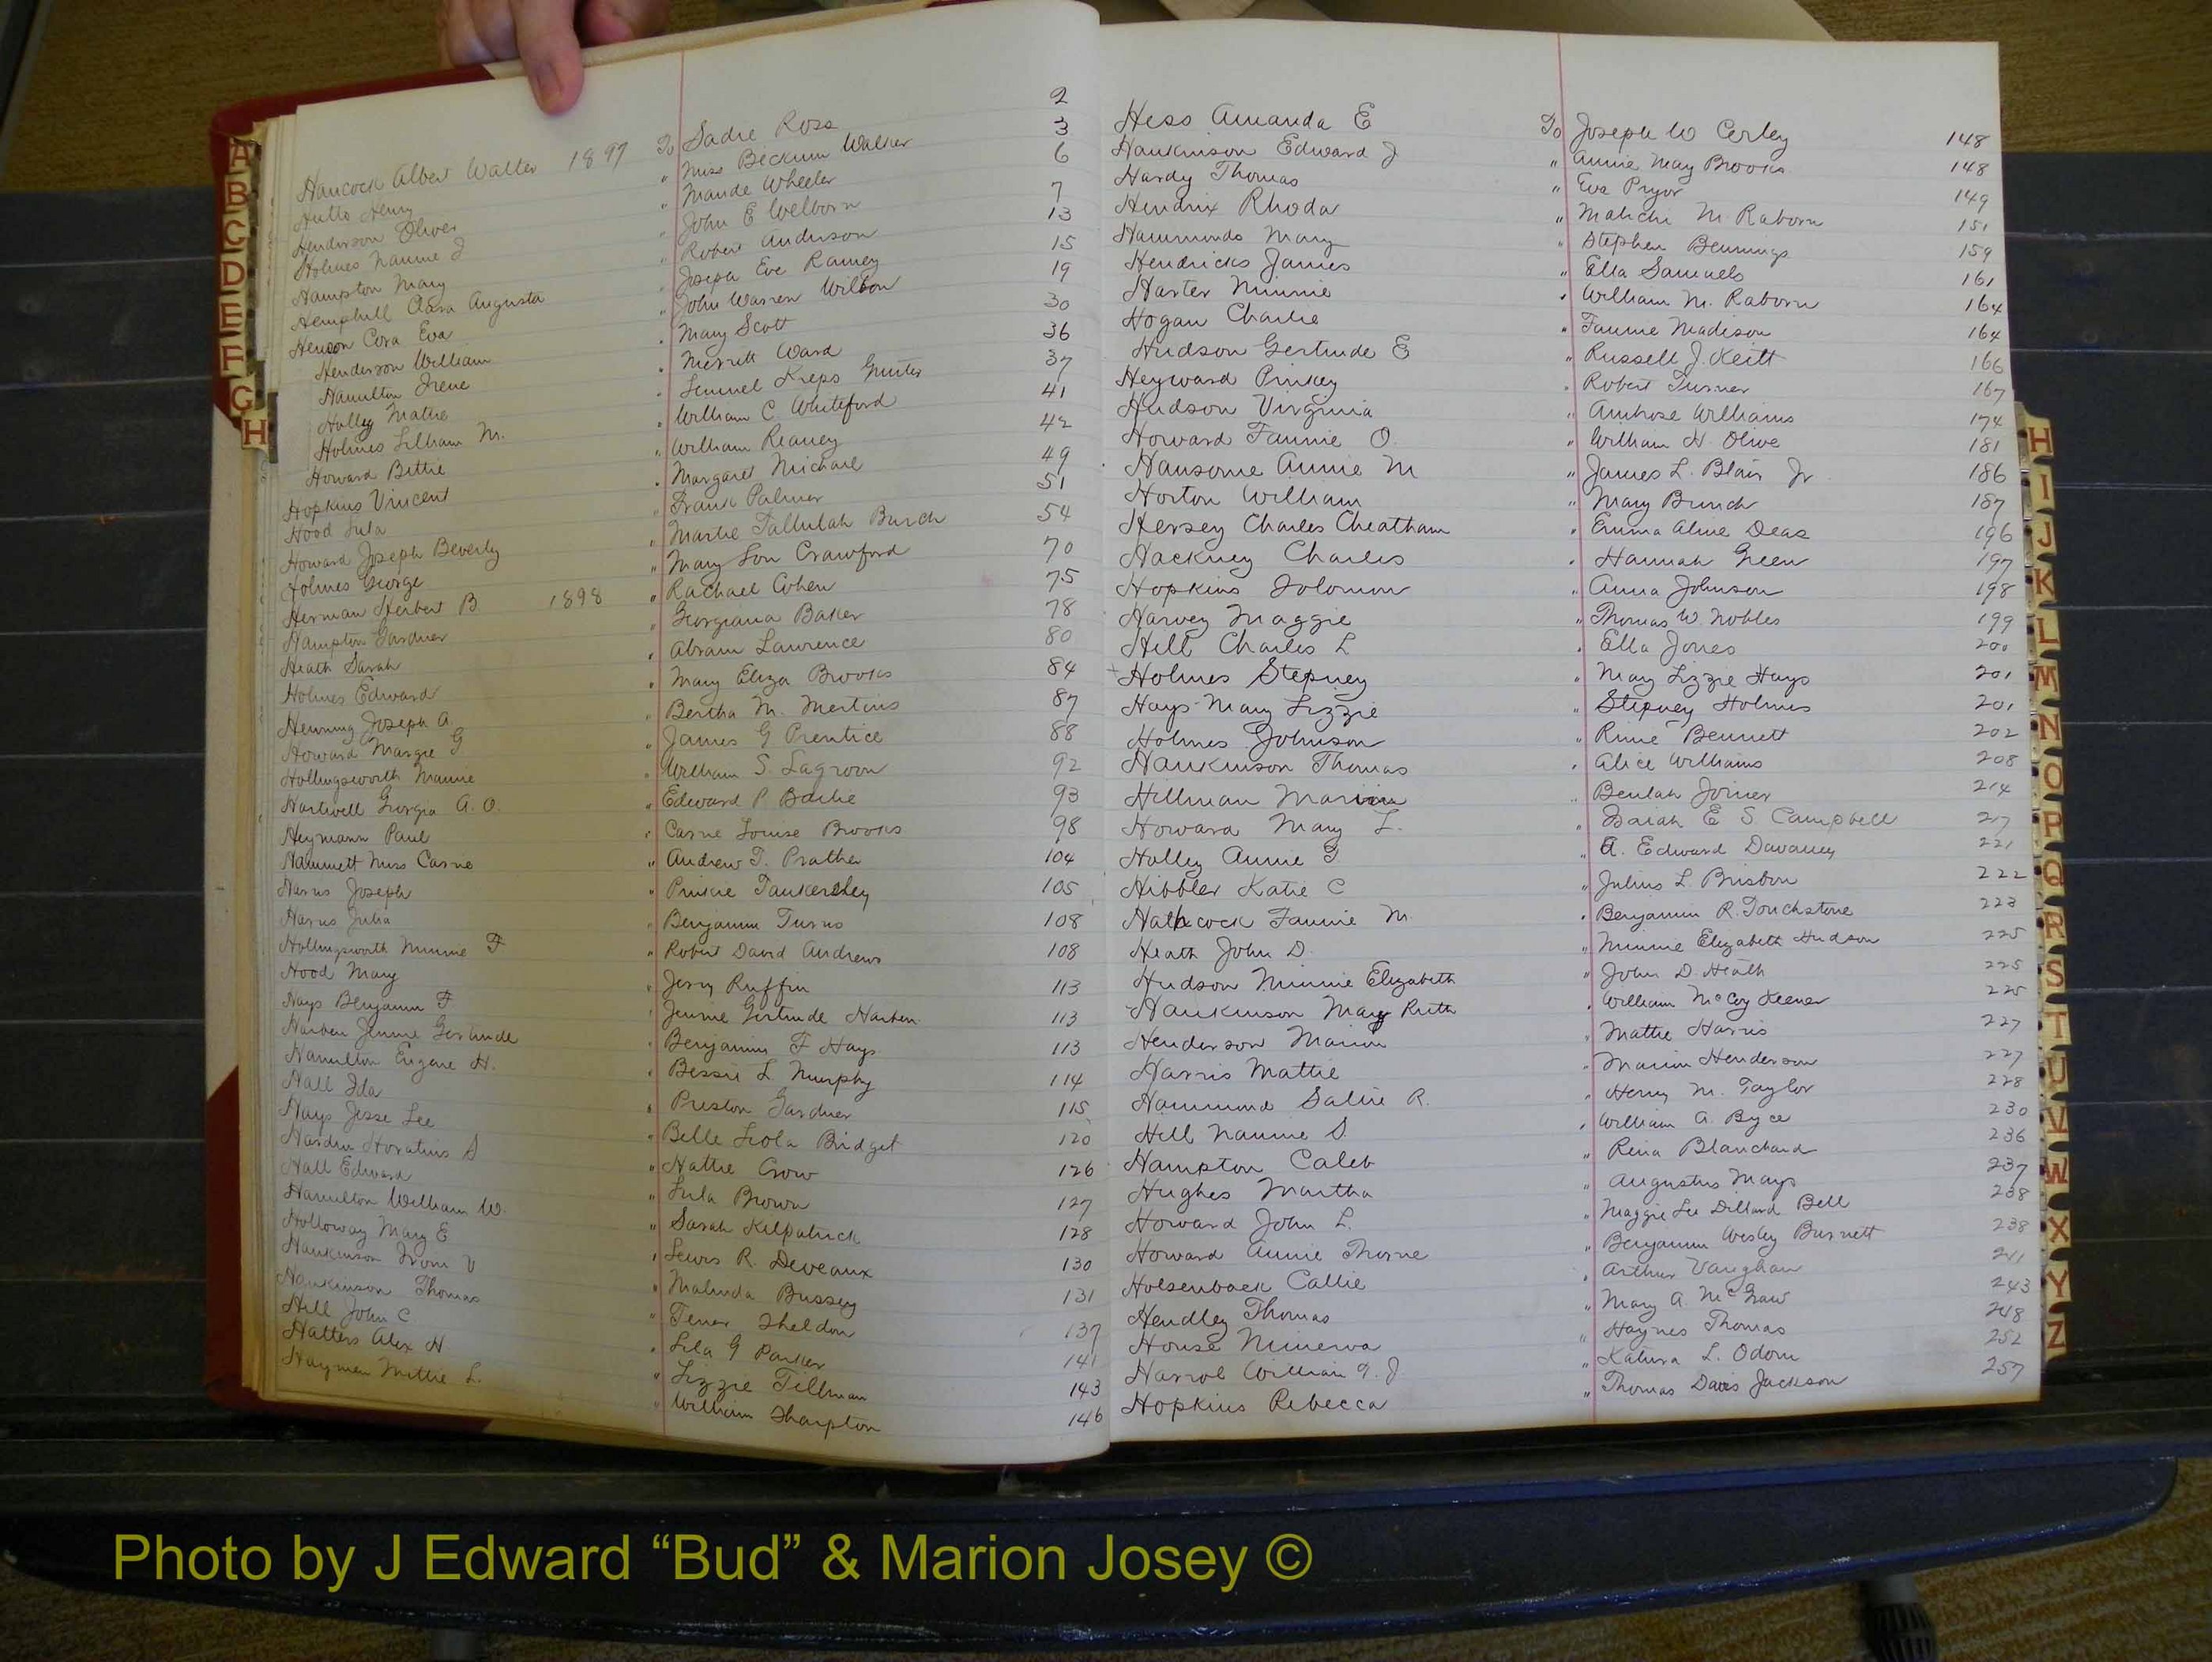 2
Hancock Albert Walter 1897 To Sadie Ross 3
Hutto Henry " Miss Beckum Walker 6
Henderson Oliver " Maude Wheeler 7
Holmes Nannie J " John E Welborn 13
Hampton Mary " Robert Anderson 15
Hemphill Clara Augusta " Joseph Eve Ramey 19
Henson Cora Eva " John Warren Wilson 30
Henderson William " Mary Scott 36
Hamilton Irene " Merritt Ward 37
Holley Mattie " Lemuel Kreps Gunter 41
Holmes Lilliam M. " William C Whiteford 42
Howard Bettie " William Reaney 49
Hopkins Vincent " Margaret Michael 51
Hood Lula " Frank Palmer 54
Howard Joseph Beverly " Martie Tallulah Burch 70
Holmes George " Mary Lou Crawford 75
Herman Herbert B 1898 " Rachael Cohen 78
Hampton Gardner " Georgiana Baker 80
Heath Sarah " Abram Lawrence 84
Holmes Edward " Mary Eliza Brooks 87
Henning Joseph A. " Bertha M. Mertins 88
Howard Margie G " James G Prentice 92
Hollingsworth Mamie " William S. Lagroon 93
Hartwell Georgia A. O. " Edward P Bailie 98
Heymann Paul " Carrie Louise Brooks 104
Hammett Miss Carrie " Andrew T. Prather 105
Harris Joseph " Pinkie Tankersley 108
Harris Julia " Benjamin Turno 108
Hollingsworth Minnie F " Robert David Andrews 113
Hood Mary " Jerry Ruffin 113
Hays Benjamin F " Jennie Gertrude Harben 113
Harben Jennie Gertrude " Benjamin F Hays 114
Hamilton Eugene H. " Bessie L Murphy 115
Hall Ida " Preston Gardner 120
Hays Jesse Lee " Belle Leola Bridget 126
Hardin Horatius S " Hattie Crow 127
Hall Edward " Lula Brown 128
Hamilton William W. " Sarah Kilpatrick 130
Holloway Mary E " Lewis R. Deveaux 131
Hankinson From V " Malinda Bussey 137
Hankinson Thomas " Tener Sheldon 141
Hill John C " Lila G Parker 143
Hatters Alex H " Lizzie Tillman 146
Haymen Mittie L. " William Sharpton
Hess Amanda E To Joseph W Cerley 148
Hankinson Edward J. " Annie May Brooks 148
Hardy Thomas " Eva Pryor 149
Hendrix Rhoda " Malichi M. Raborn 151
Hammonds Mary " Stephen Bennings 159
Hendricks James " Ella Samuels 161
Harter Minnie " William M. Raborn 164
Hogan Charlie " Fannie Madison 164
Hudson Gertrude E " Russell J. Keitt 166
Heyward Pinkey " Robert Turner 167
Hudson Virginia " Ambrose Williams 174
Howard Fannie O. " William H. Olive 181
Hansome Annie M " James L. Blair Jr 186
Horton William " Mary Bunch 187
Hersey Charles Cheatham " Emma Aline Deas 196
Hackney Charles " Hannah Green 197
Hopkins Solomon " Anna Johnson 198
Harvey Maggie " Thomas W. Nobles 199
Hill Charles L " Ella Jones 200
+ Holmes Stepney " May Lizzie Hays 201
Hays Mary Lizzie " Stepney Holmes 201
Holmes Johnson " Rinie Bennett 202
Hankinson Thomas " Alice Williams 208
Hillman Maria " Beulah Joiner 214
Howard Mary L. " Isaiah E S. Campbell 217
Holley Annie G " A. Edward Davaney 221
Hibbler Katie C " Julius L. Brisbon 222
Hathcock Fannie M. " Benjamin R. Touchstone 223
Heath John D. " Minnie Elizabeth Hudson 225
Hudson Minnie Elizabeth " John D. Heath 225
Hankinson Mary Ruth " William McCoy Keener 225
Henderson Marion " Mattie Harris 227
Harris Mattie " Marion Henderson 227
Hammond Salie R. " Henry M. Taylor 228
Hill Nannie S. " William A. Byce 230
Hampton Caleb " Rena Blanchard 236
Hughes Martha " Augustus Mays 237
Howard John L. " Maggie Lee Dillard Bell 238
Howard Annie Thorne " Benjamin Wesley Burnett 238
Holsenback Callie " Arthur Vaughan 241
Hendley Thomas " Mary A. McGraw 243
House Minerva " Haynes Thomas 248
Harrol William T. J. " Katura L. Odom 252
Hopkins Rebecca " Thomas Davis Jackson 257
A
B
C
D
E
F
G
H
H
I
J
K
L
M
N
O
P
Q
R
S
T
U
V
W
X
Y
Z
Photo by J Edward “Bud” & Marion Josey ©